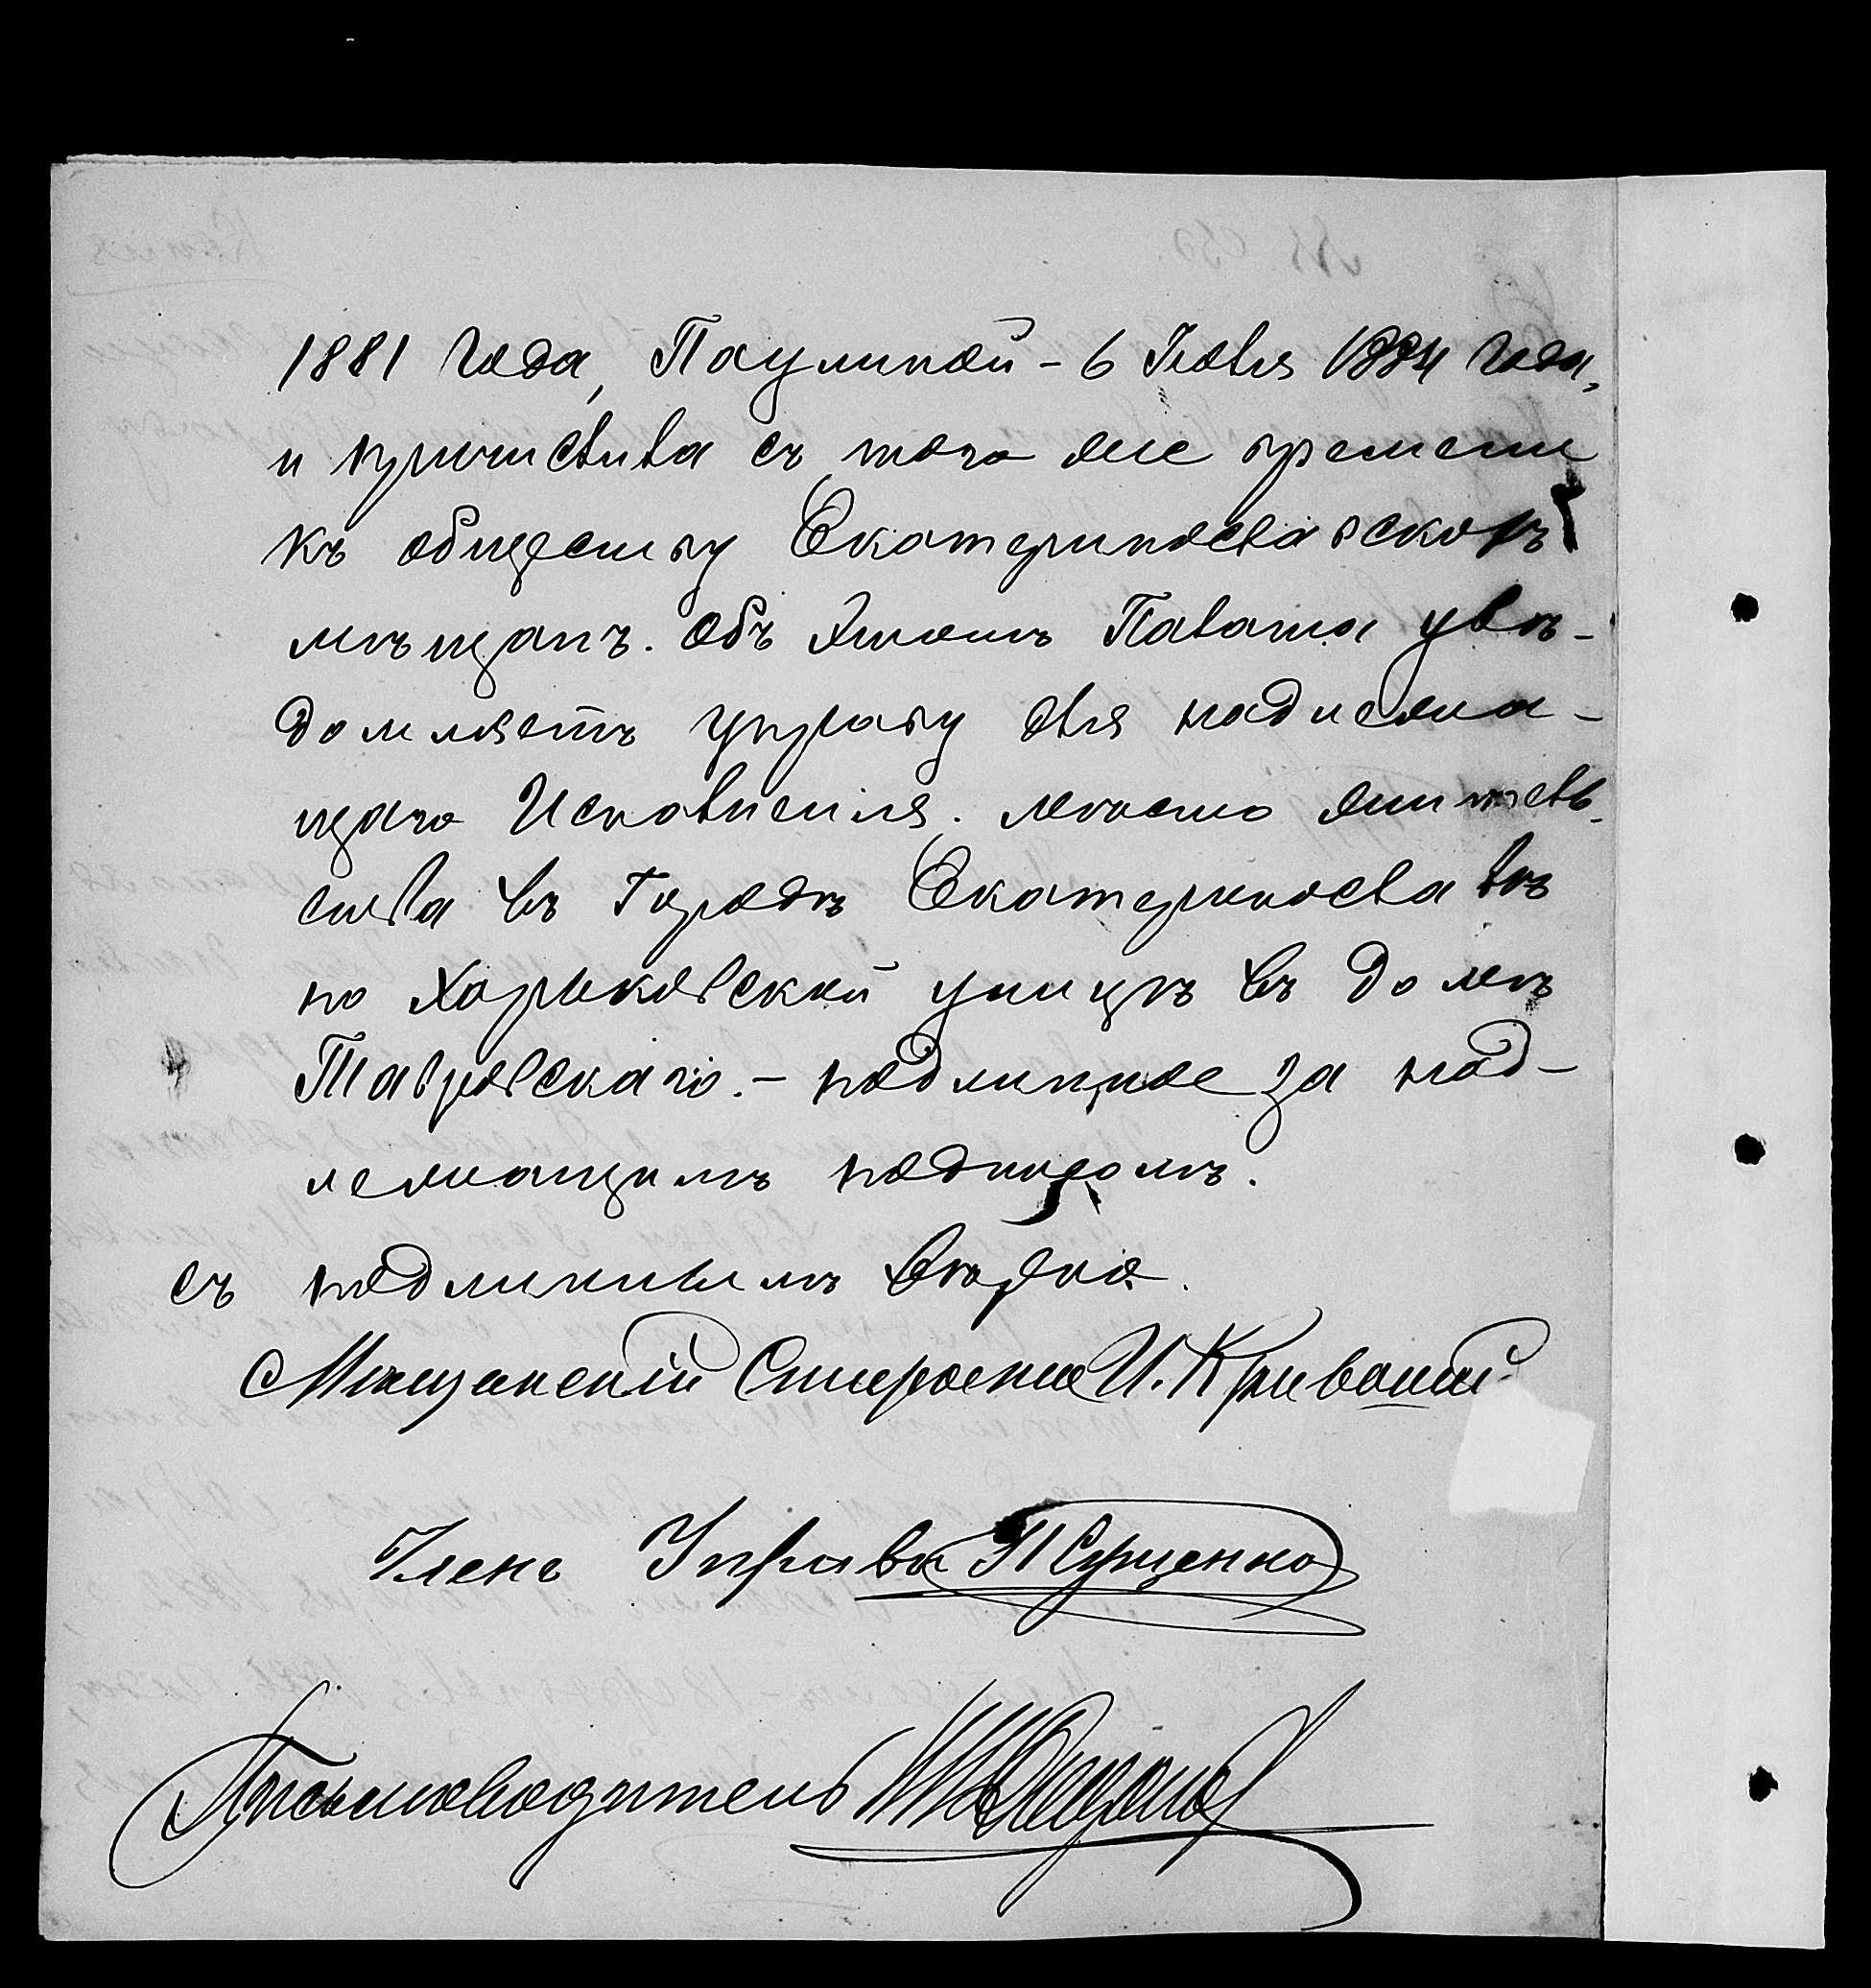 1881 года, Паулиной - 6 Июля 1884 года,
и причислила съ того же времени
къ обществу Екатеринославскихъ
мѣщанъ. Объ этомъ Палата увѣ-
домляетъ управу для надлежа-
щаго Исполненія. мѣсто житель-
ства въ Городѣ Екатеринославлѣ
по Харьковской улицѣ въ домѣ
Тавровскаго. - подлинное за над-
лежащимъ подписомъ.
съ подлиннымъ вѣрно.
Мѣщанскій Староста И. Кривошій
Членъ Управы П Сущенко
Письмоводитель